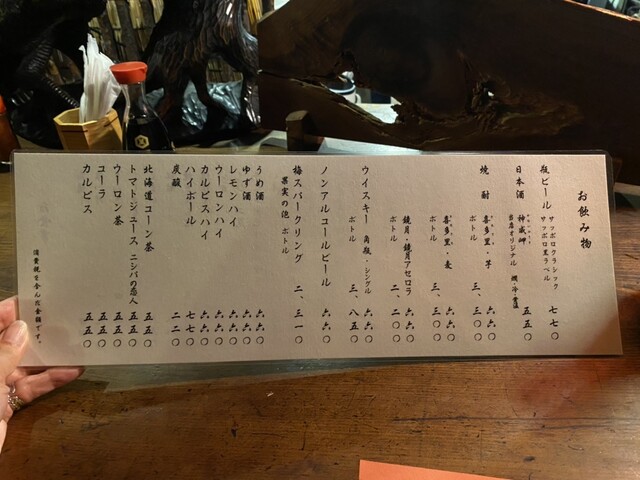 お飲み物
瓶ビール サッポロクラシック 七七〇
サッポロ黒ラベル
日本酒 神威岬 五五〇
当店オリジナル 燗・冷・常温
焼酎 喜多里・芋 六六〇
ボトル 三、三〇〇
喜多里・麦 六六〇
ボトル 三、三〇〇
鏡月・鏡月アセロラ 六六〇
ボトル 二、二〇〇
ウイスキー 角瓶・シングル 六六〇
ボトル 三、八五〇
ノンアルコールビール 六六〇
梅スパークリング 二、三一〇
果実の泡 ボトル
うめ酒 六六〇
ゆず酒 六六〇
レモンハイ 六六〇
ウーロンハイ 六六〇
カルピスハイ 六六〇
ハイボール 七七〇
炭酸 二二〇
北海道コーン茶 五五〇
トマトジュース ニシパの恋人 五五〇
ウーロン茶 五五〇
コーラ 五五〇
カルピス 五五〇
消費税を含んだ金額です。